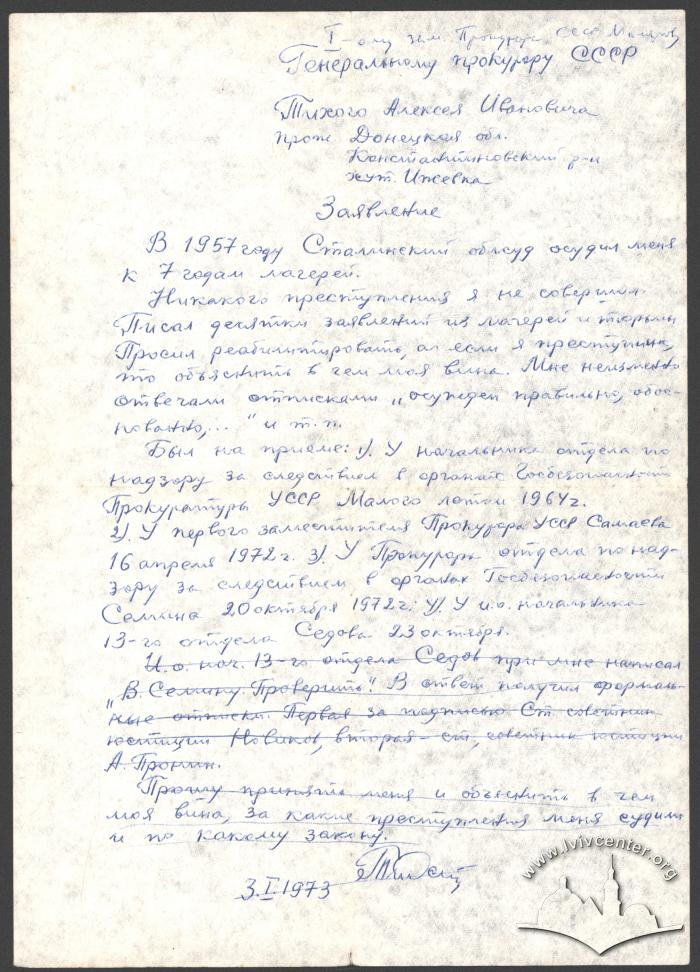 I-ому зам. Прокурора СССР
Генеральному прокурору СССР
Тихого Алексея Ивановича
прож Донецкая обл.
Константиновский р-н
хут. Ижевка
Заявление
В 1957 году Сталинский облсуд осудил меня
к 7 годам лагерей.
Никакого преступления я не совершил.
Писал десятки заявлений из лагерей и тюрьмы
Просил реабилитировать, а если я преступник,
то объяснить в чем моя вина. Мне неизменно
отвечали отписками „осужден правильно, обос-
нованно,..." и т.п.
Был на приеме: 1). У начальника отдела по
надзору за следствием в органах Госбезопасности
Прокуратуры УССР Малого летом 1964 г.
2). У первого заместителя Прокурора УССР Самаева
16 апреля 1972 г. 3). У Прокурора отдела по над-
зору за следствием в органах Госбезопасности
Семина 20 октября 1972 г. 4). У и.о. начальника
13-го отдела Седова 23 октября.
И.о. нач. 13-го отдела Седов при мне написал
„В. Семину. Проверить". В ответ получил формаль-
ные отписки. Первая за подписью Ст. советник
юстиции Новиков, вторая - ст. советник юстиции
А. Пронин.
Прошу принять меня и объяснить в чем
моя вина, за какие преступления меня судили
и по какому закону.
3.I.1973
www.lvivcenter.org